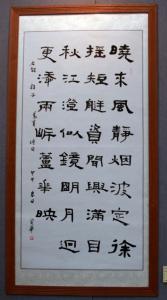 曉來風靜烟波定徐
棹短艇資閒興滿目
秋江澄似鏡明月迥
更添兩岸蘆華映